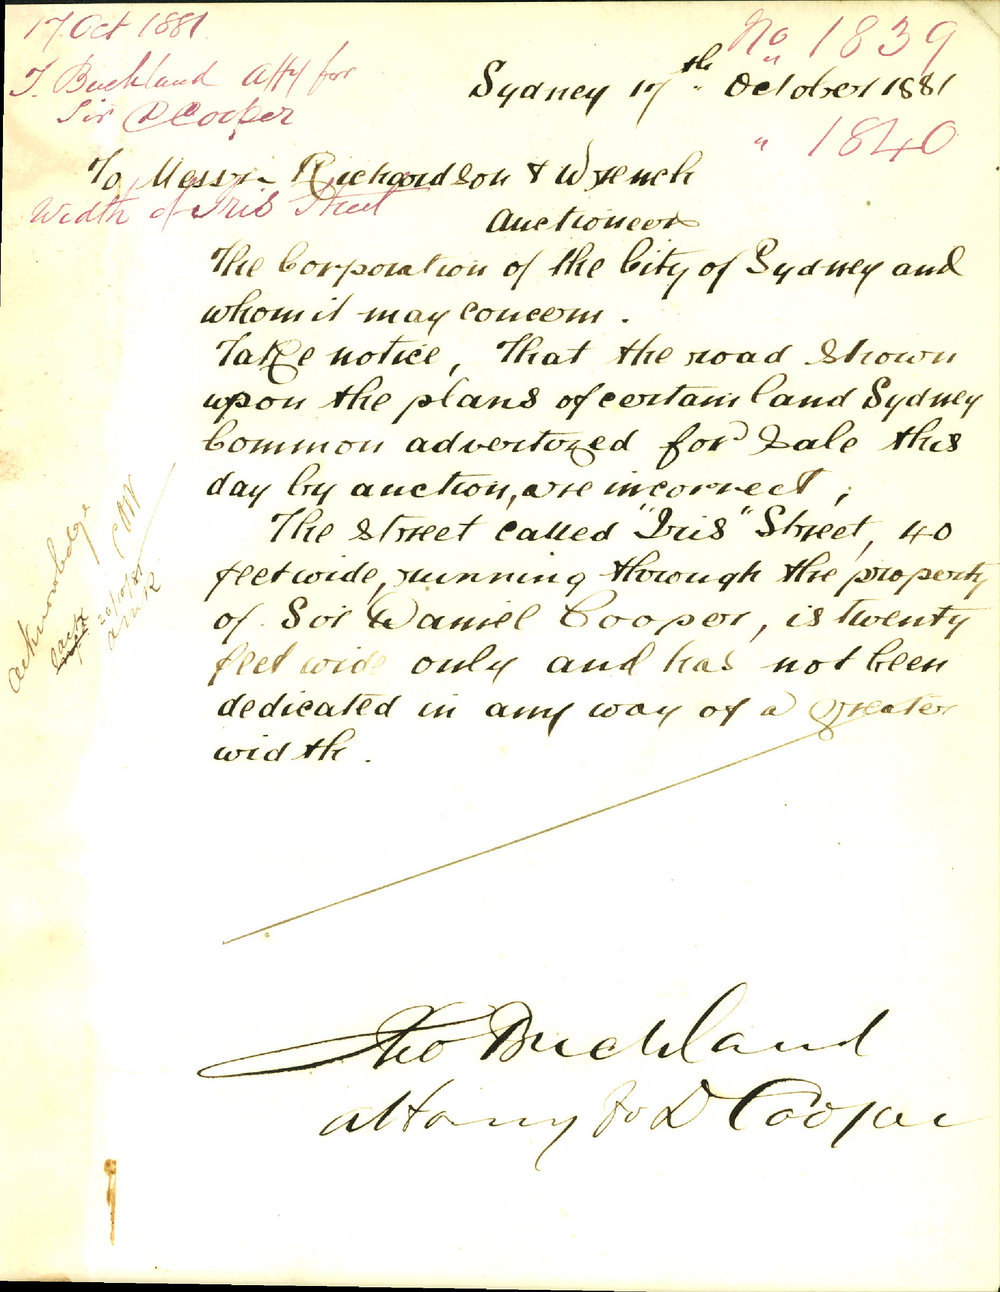 17 Oct 1881
No 1839
T. Buckland Atty for
Sydney 17th October 1881
Sir D Cooper
" 1840
To Messrs Richardson & Wrench
Width of Iris Street
Auctioneers
The Corporation of the City of Sydney and
whom it may concern.
Take notice, That the road shown
upon the plans of certain land Sydney
Common advertized for Sale this
day by auction, are incorrect;
The street called "Iris" Street, 40
feet wide, running through the property
of Sir Daniel Cooper, is twenty
feet wide only and has not been
dedicated in any way of a greater
width.
Acknowledge
each
20/10/81
Tho Buckland
attorny for D Cooper